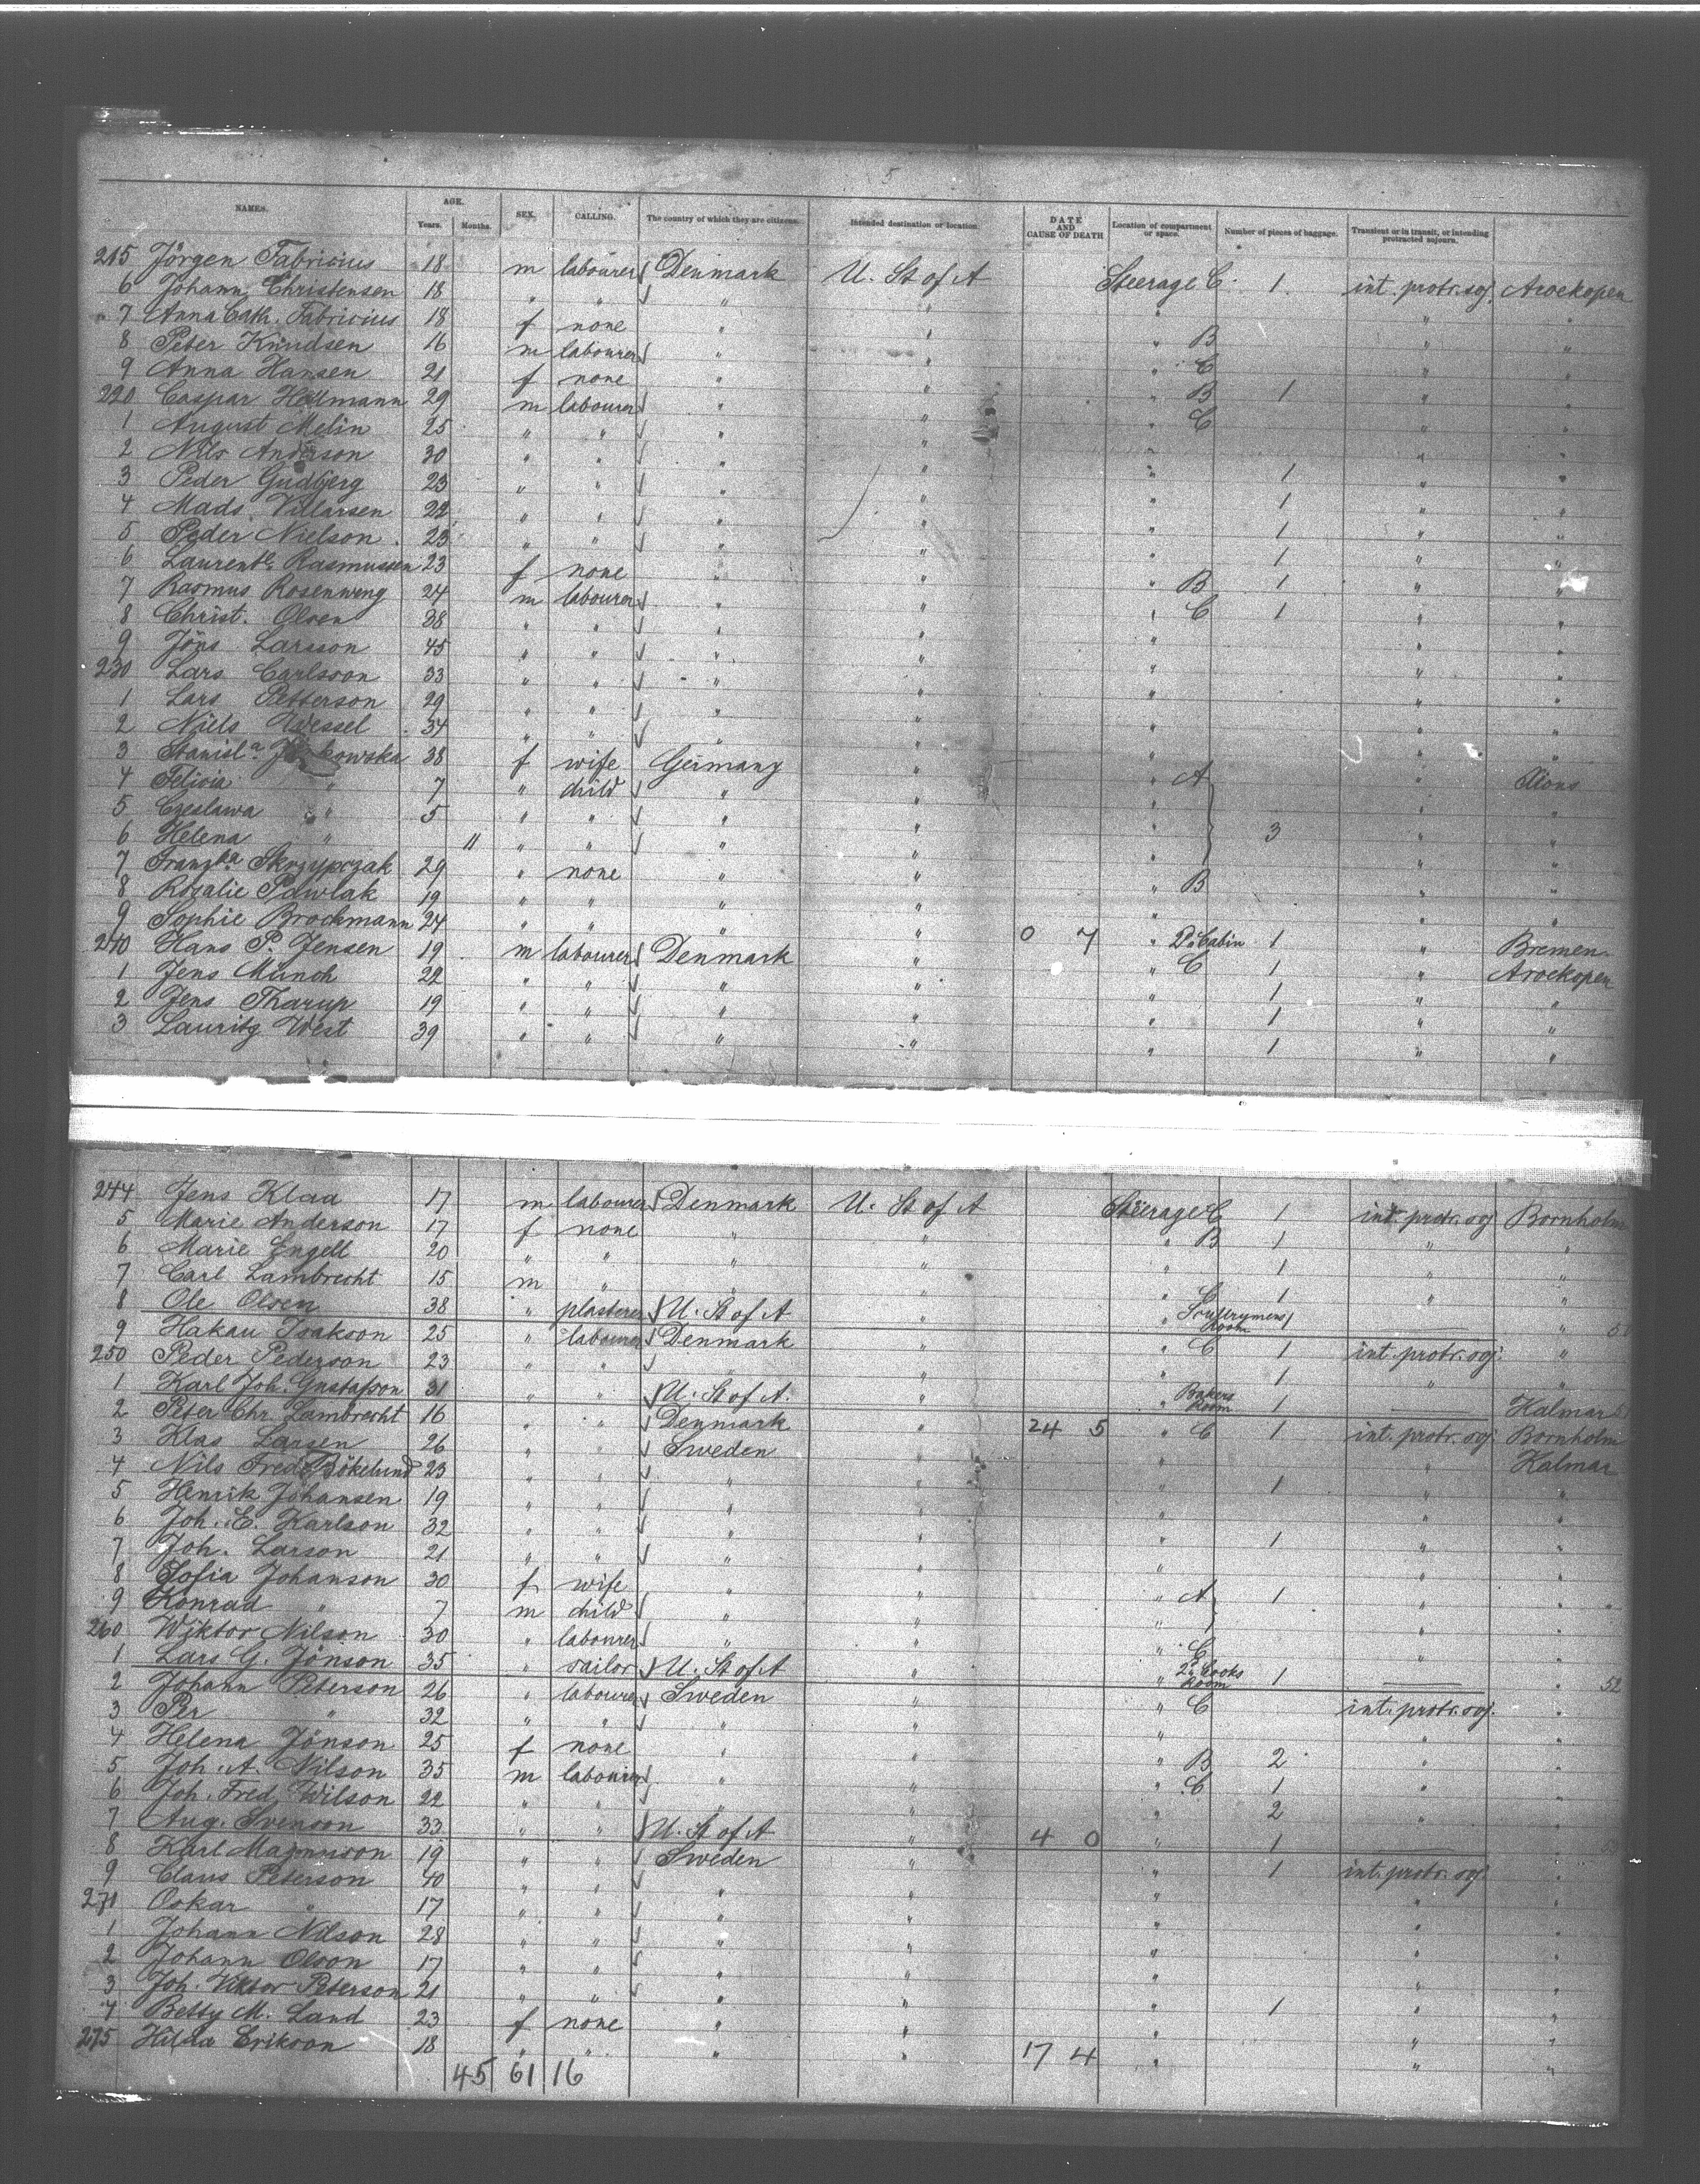 5
NAMES. AGE. Years. Months. SEX. CALLING. The country of which they are citizens. Intended destination or location DATE AND CAUSE OF DEATH Location of compartment or space. Number of pieces of baggage. Transient or in transit, or intending protracted sojourn.
215 Jörgen Fabricius 18 m labourer Denmark U. St of A Steerage C. 1. int. protr. soj. Aroeskopen
6 Johann Christensen 18 " " " " " " "
7 Anna Cath. Fabricius 18 f none " " " B " "
8 Peter Knudsen 16 m labourer " " " C " "
9 Anna Hansen 21 f none " " " B 1 " "
220 Caspar Hollmann 29 m labourer " " " C " "
1 August Melin 25 " " " " " " "
2 Nils Anderson 30 " " " " " 1 " "
3 Peder Gudbjerg 23 " " " " " 1 " "
4 Mads Villarsen 22 " " " " " 1 " "
5 Peder Nielson 23 " " " " " 1 " "
6 Laurente Rasmussen 23 f none " " " B 1 " "
7 Rasmus Rosenweng 24 m labourer " " " C 1 " "
8 Christ. Olsen 38 " " " " " " "
9 Jöns Larsson 45 " " " " " " "
230 Lars Carlsson 33 " " " " " " "
1 Lars Petterson 29 " " " " " " "
2 Niels Wessel 34 " " " " " " "
3 Stanisl.a 38 f wife Germany " " A "
4 Felicia " 7 " child " " " " "
5 Czeslawa " 5 " " " " " 3 " "
6 Helena " 11 " " " " " " "
7 Franzka Skrzypczak 29 " none " " " B " "
8 Rosalie Pawlak 19 " " " " " " "
9 Sophie Brockmann 24 " " " " 0 7 " 2d Cabin 1 " Bremen
240 Hans P. Jensen 19 m labourer Denmark " " C 1 " Aroeskopen
1 Jens Munch 22 " " " " " 1 " "
2 Jens Tharup 19 " " " " " 1 " "
3 Lauritz West 39 " " " " " 1 " "
244 Jens Klaa 17 m labourer Denmark U. St of A Steerage C 1 int. protr. soj Bornholm
5 Marie Anderson 17 f none " " " B 1 " "
6 Marie Engell 20 " " " " " 1 " "
7 Carl Lambrecht 15 m " " " " C 1 " "
8 Ole Olsen 38 " plasterer U. St of A " " Room 1 "
9 Hakau Isakson 25 " labourer Denmark " " C 1 int. protr. soj. "
250 Peder Pederson 23 " " " " " 1 " "
1 Karl Joh. Gustafson 31 " " U. St of A. " " Bakers Room 1 Kalmar
2 Peter Chr. Lambrecht 16 " " Denmark " 24 5 " C 1 int. protr. soj. Bornholm
3 Klas Larsen 26 " " Sweden " " " Kalmar
4 Nils Fred. Bökelund 23 " " " " " 1 " "
5 Henrik Johansen 19 " " " " " " "
6 Joh. E. Karlson 32 " " " " " 1 " "
7 Joh. Larson 21 " " " " " " "
8 Sofia Johanson 30 f wife " " " A 1 " "
9 Konrad " 7 m child " " " " "
260 Wiktor Nilson 30 " labourer " " " C " "
1 Lars G. Jönson 35 " sailor U. St of A " " 2d Cooks Room 1 " 52
2 Johann Peterson 26 " labourer Sweden " " C int. protr. soj. "
3 Per " 32 " " " " " " "
4 Helena Jönson 25 f none " " " B 2 " "
5 Joh. A. Nilson 35 m labourer " " " C 1 " "
6 Joh. Fred. Wilson 22 " " " " " 2 " "
7 Aug. Svenson 33 " " U. St of A " 4 0 " 1 " 53
8 Karl Magnuson 19 " " Sweden " " 1 int. protr. soj. "
9 Claus Peterson 40 " " " " " " "
270 Oskar " 17 " " " " " " "
1 Johann Nilson 28 " " " " " " "
2 Johann Olson 17 " " " " " " "
3 Joh. Viktor Peterson 21 " " " " " 1 " "
4 Betty M. Land 23 f none " " " " "
275 Hilda Erikson 18 " " " " 17 4 " " "
45 61 16